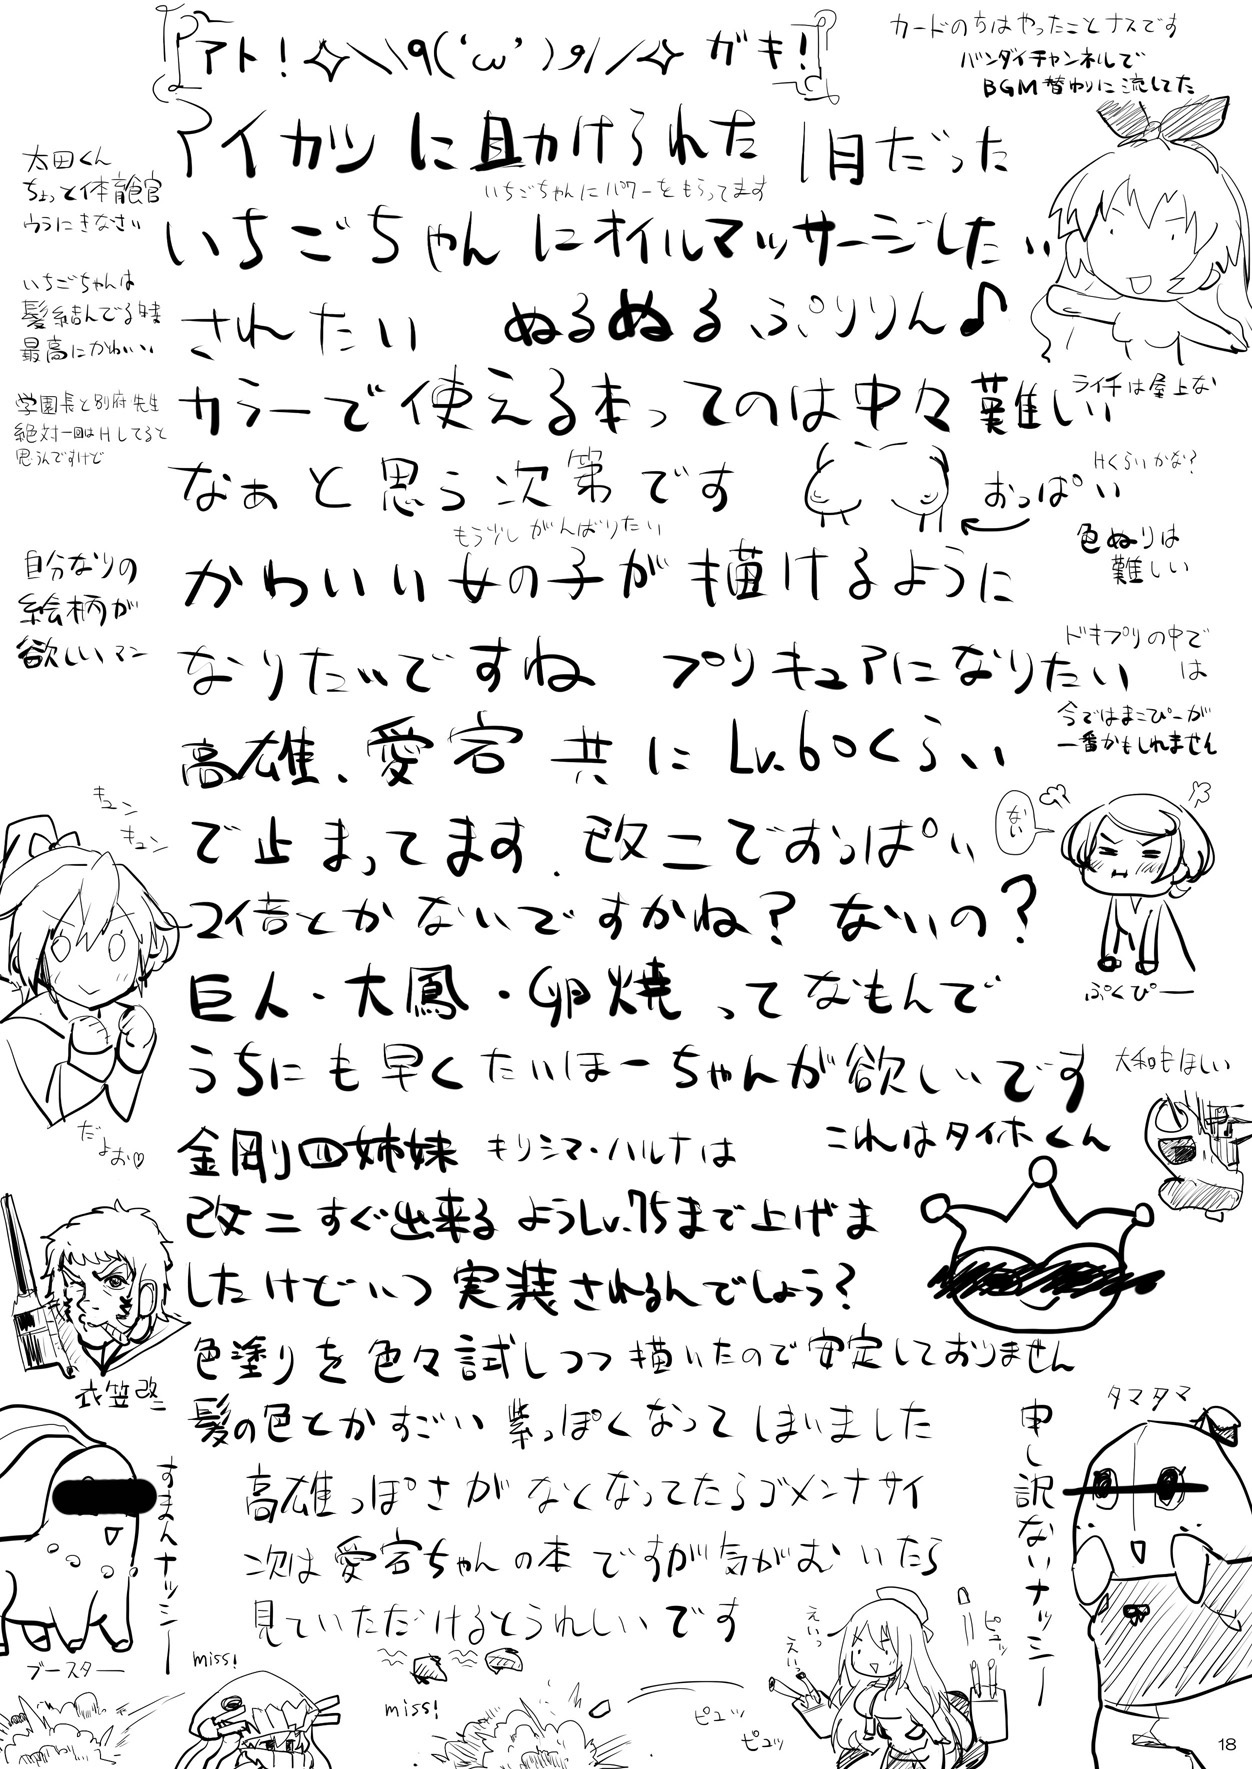 アト！✧＼\q('ω')و/／✧ ガキ！
カードのちはやったことナスです
バンダイチャンネルで
BGM替わりに流してた
アイカツに助けられた1月だった
いちごちゃんにパワーをもらってます
太田くん
ちょっと体育館
ウラにきなさい
いちごちゃんにオイルマッサージしたい
いちごちゃんは
髪結んでる時
最高にかわいい
されたい ぬるぬるぷりりん♪
学園長と別府先生
絶対一回はHしてると
思うんですけど
カラーで使える本ってのは中々難しい
ライチは屋上な
なぁと思う次第です
おっぱい
Hくらいかな？
もう少しがんばりたい
色ぬりは
難しい
自分なりの
絵柄が
欲しいマン
かわいい女の子が描けるように
なりたいですね プリキュアになりたい
ドキプリの中で
は
今ではまこぴーが
一番かもしれません
高雄、愛宕共にLv.60くらい
で止まってます. 改二でおっぱい
キュン
キュン
ない
2倍とかないですかね？ないの？
ぷくぴー
巨人・大鳳・卵焼ってなもんで
うちにも早くたいほーちゃんが欲しいです
大和もほしい
だよお♡
金剛四姉妹 キリシマ・ハルナは
これはタイホくん
改二すぐ出来るようLv.75まで上げま
したけどいつ実装されるんでしょう？
衣笠改二
色塗りを色々試しつつ描いたので安定しておりません
髪の色とかすごい紫っぽくなってしまいました
高雄っぽさがなくなってたらゴメンナサイ
次は愛宕ちゃんの本ですが気がむいたら
見ていただけるとうれしいです
タマタマ
申し訳ないナッシー
すまんナッシー
ブースター
miss!
miss!
えいっ
えいっ
ピュッ
ピュッ
ピュッ
18